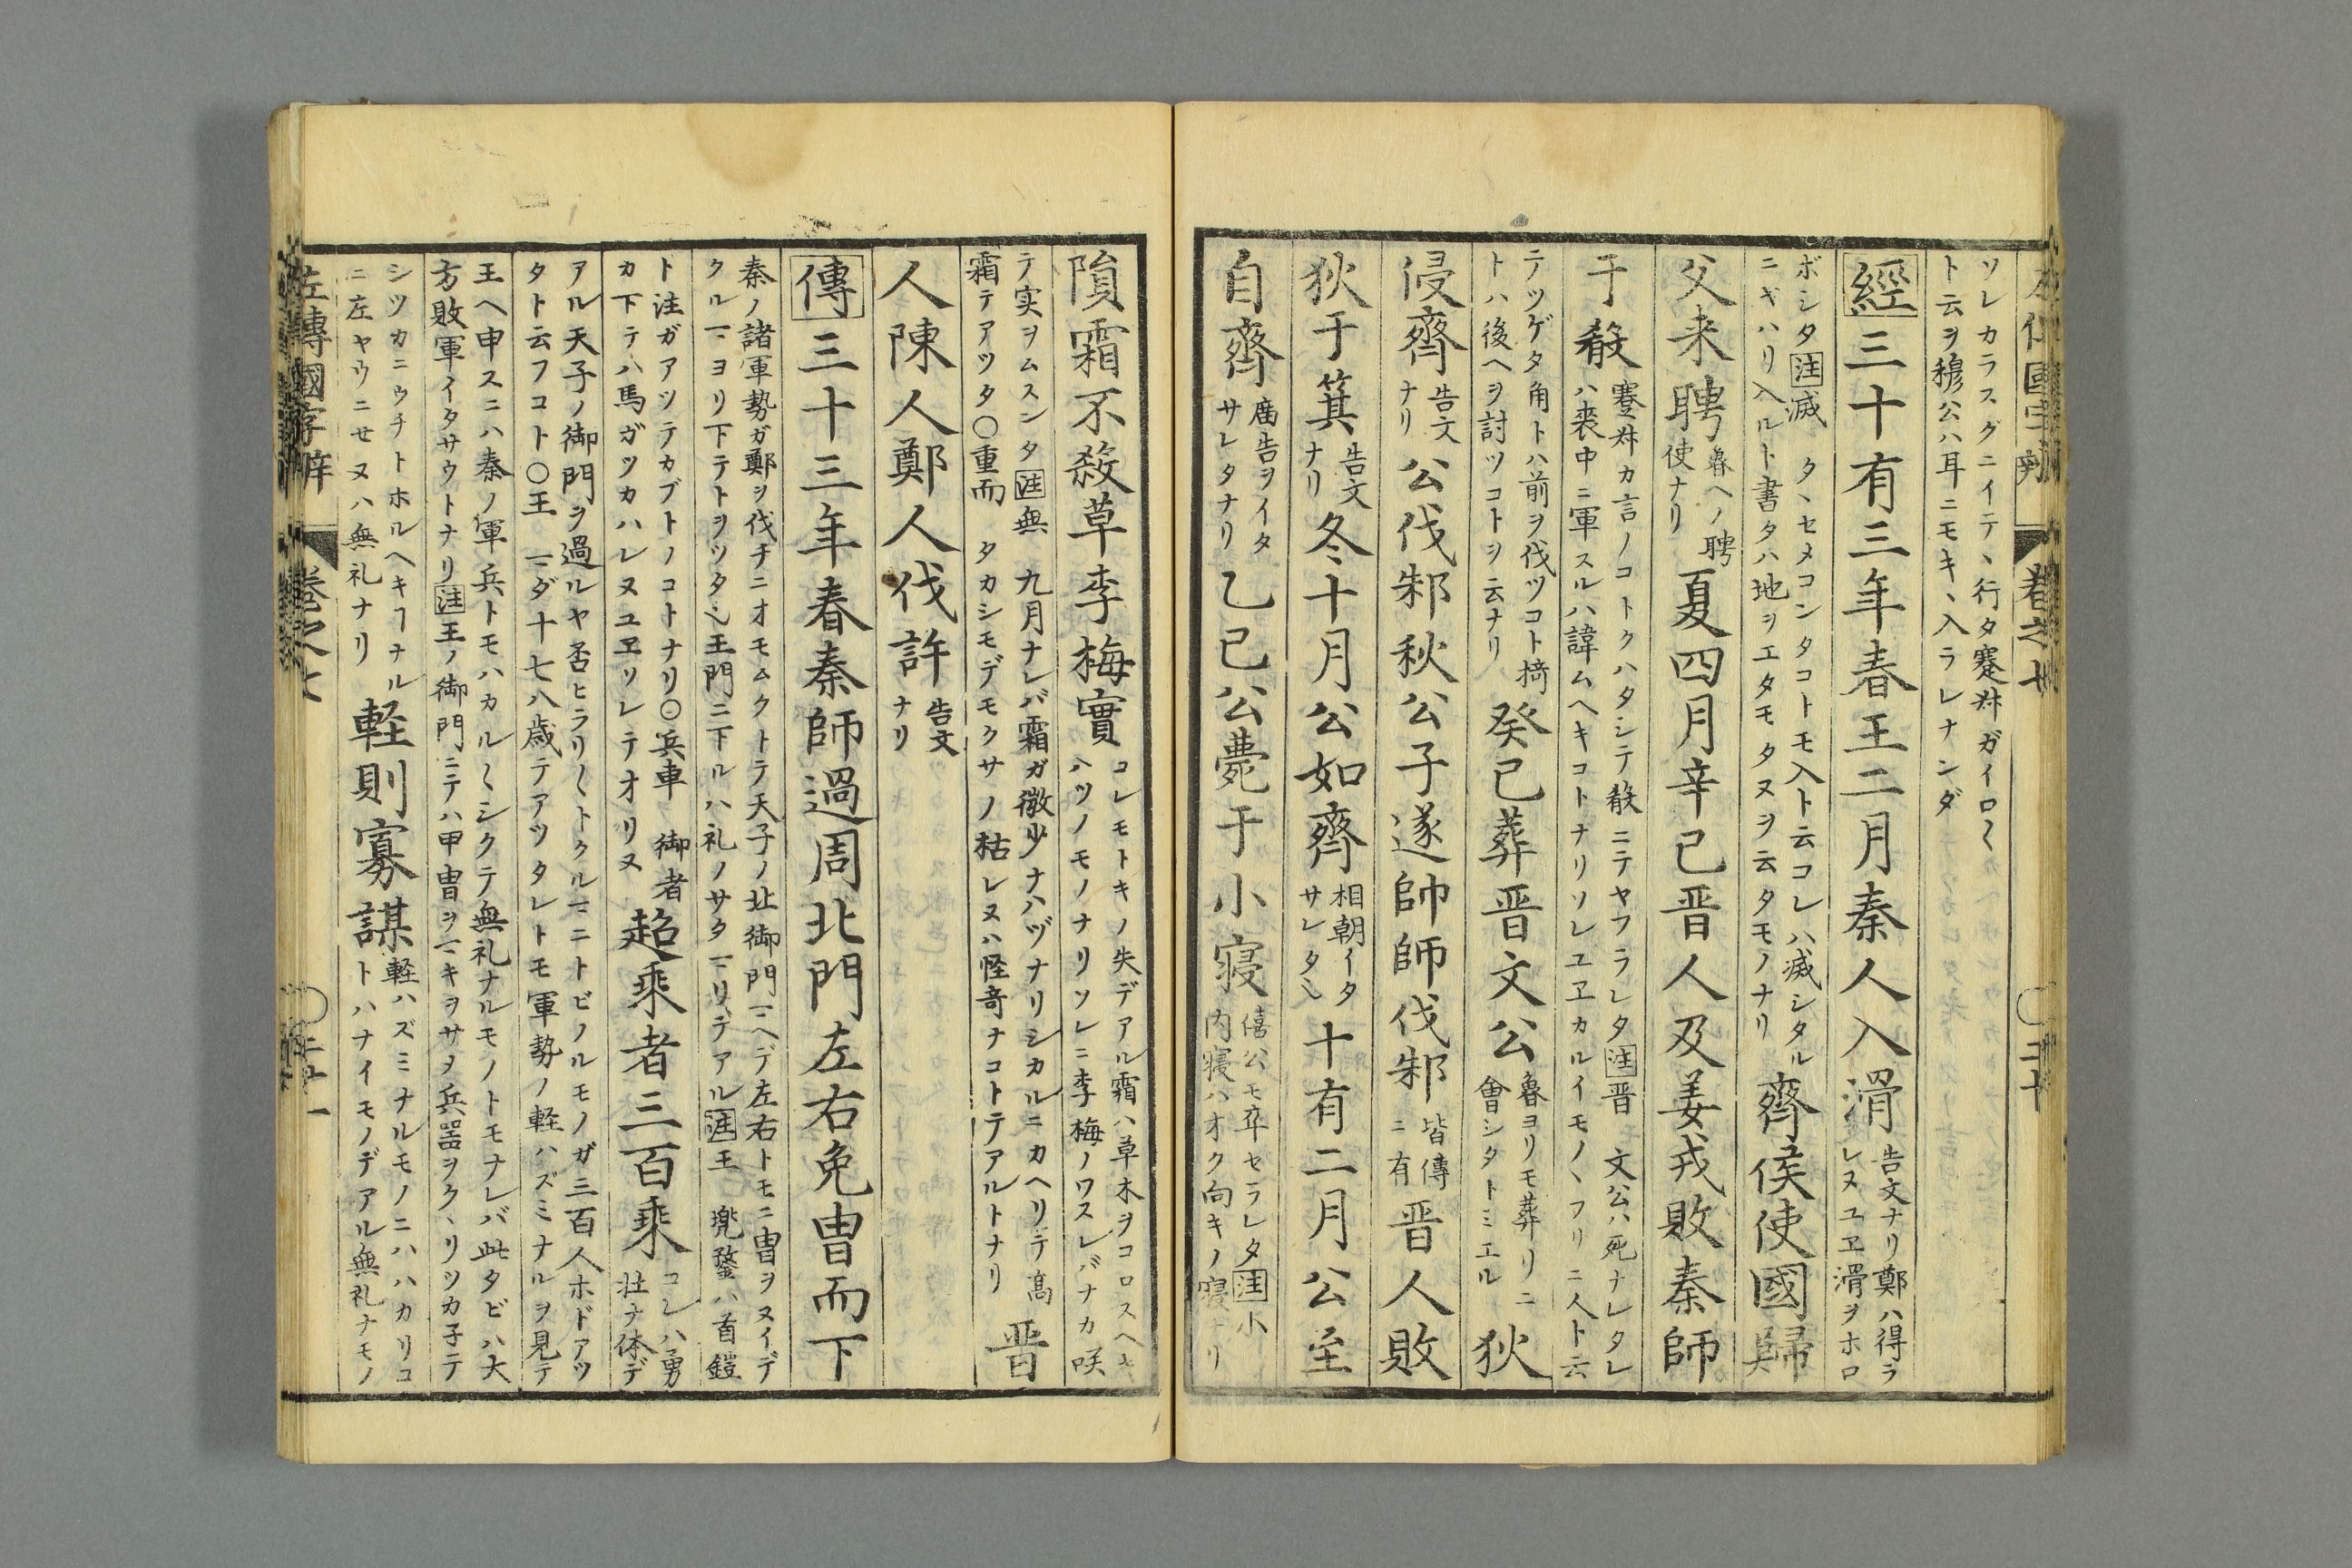 左傳國字辨 巻之七 二十
ソレカラスグニイテ、行タ蹇叔ガイロ〱
ト云ヲ穆公ハ耳ニモキ、入ラレナンダ
經三十有三年春王二月秦人入滑
告文ナリ鄭ハ得ラ
レヌユヱ滑ヲホロ
ボシタ注滅 クヽセメコンタコトモ入ト云コレハ滅シタル
ニギハリ入ルト書タハ地ヲエタモタヌヲ云タモノナリ
齊侯使國歸
父来聘
魯ヘノ聘
使ナリ
夏四月辛巳晋人及姜戎敗秦師
于殽
蹇叔カ言ノコトクハタシテ殽ニテヤフラレタ注晋 文公ハ死ナレタレ
ハ喪中ニ軍スルハ諱ムヘキコトナリソレユヱカルイモノヽフリニ人ト云
テツゲタ角トハ前ヲ伐ツコト掎
トハ後ヘヲ討ツコトヲ云ナリ
癸巳葬晋文公
魯ヨリモ葬リニ
會シタトミエル
狄
侵齊
告文
ナリ
公伐邾秋公子遂帥師伐邾
皆傳
ニ有
晋人敗
狄于箕
告文
ナリ
冬十月公如齊
相朝イタ
サレタ也
十有二月公至
自齊
廟告ヲイタ
サレタナリ
乙巳公薨于小寝
僖公モ卒セラレタ注小
内寝ハオク向キノ寝ナリ
隕霜不殺草李梅實
コレモトキノ失デアル霜ハ草木ヲコロスヘキ
ハツノモノナリソレニ李梅ノワスレバナカ咲
テ実ヲムスンタ注無 九月ナレバ霜ガ微少ナハヅナリシカルニカヘリテ髙
霜テアツタ〇重而 タカシモデモクサノ枯レヌハ怪奇ナコトテアルトナリ
晋
人陳人鄭人伐許
告文
ナリ
傳三十三年春秦師過周北門左右免冑而下
秦ノ諸軍勢ガ鄭ヲ伐チニオモムクトテ天子ノ北御門マヘデ左右トモニ冑ヲヌイデ
クルマヨリ下テトヲツタ也王門ニ下ルハ礼ノサタマリデアル注王 兠鍪ハ首鎧
ト注ガアツテカブトノコトナリ〇兵車 御者
カ下テハ馬ガツカハレヌユヱソレテオリヌ
超乗者三百乗
コレハ勇
壮ナ体デ
アル天子ノ御門ヲ過ルヤ否ヒラリ〱トクルマニトビノルモノガ三百人ホドアツ
タト云フコト〇王 マダ十七八歳テアツタレトモ軍勢ノ軽ハズミナルヲ見テ
王ヘ申スニハ秦ノ軍兵トモハカル〱シクテ無礼ナルモノトモナレバ此タビハ大
方敗軍イタサウトナリ注王ノ御門ニテハ甲冑ヲマキヲサメ兵噐ヲクヽリツカ子テ
シツカニウチトホルヘキヿナル
ニ左ヤウニセヌハ無礼ナリ
軽則寡謀
軽ハズミナルモノニハハカリコ
トハナイモノデアル無礼ナモノ
左傳國字辨 巻之七 二十一